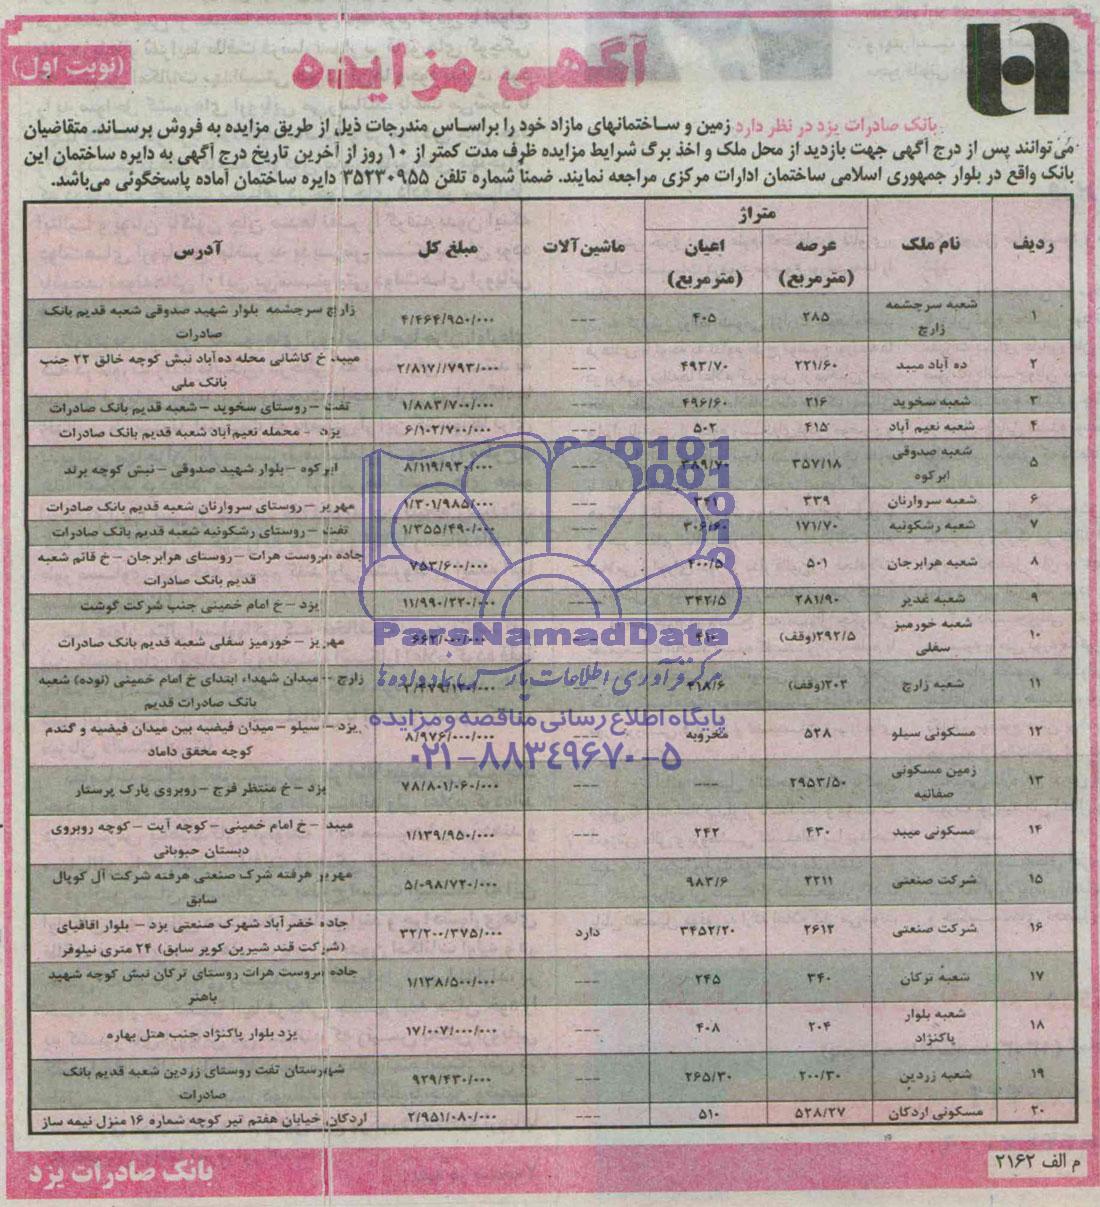 آگهی مزایده
(نوبت اول)
بانک صادرات یزد در نظر دارد زمین و ساختمانهای مازاد خود را براساس مندرجات ذیل از طریق مزایده به فروش برساند. متقاضیان
می‌توانند پس از درج آگهی جهت بازدید از محل ملک و اخذ برگ شرایط مزایده ظرف مدت کمتر از ۱۰ روز از آخرین تاریخ درج آگهی به دایره ساختمان این
بانک واقع در بلوار جمهوری اسلامی ساختمان ادارات مرکزی مراجعه نمایند. ضمناً شماره تلفن ۳۵۲۳۰۹۵۵ دایره ساختمان آماده پاسخگوئی می‌باشد.
ردیف نام ملک متراژ ماشین‌آلات مبلغ کل آدرس
عرصه (مترمربع) اعیان (مترمربع)
۱ شعبه سرچشمه زارچ ۲۸۵ ۴۰۵ --- ۴/۴۶۴/۹۵۰/۰۰۰ زارچ سرچشمه بلوار شهید صدوقی شعبه قدیم بانک صادرات
۲ ده آباد میبد ۲۲۱/۶۰ ۴۹۳/۷۰ --- ۲/۸۱۷//۷۹۳/۰۰۰ میبد خ کاشانی محله ده‌آباد نبش کوچه خالق ۲۲ جنب بانک ملی
۳ شعبه سخوید ۲۱۶ ۴۹۶/۶۰ --- ۱/۸۸۳/۷۰۰/۰۰۰ تفت – روستای سخوید – شعبه قدیم بانک صادرات
۴ شعبه نعیم آباد ۴۱۵ ۵۰۲ --- ۶/۱۰۲/۷۰۰/۰۰۰ یزد - محمله نعیم‌آباد شعبه قدیم بانک صادرات
۵ شعبه صدوقی ابرکوه ۳۵۷/۱۸ ۳۸۹/۷۰ --- ۸/۱۱۹/۹۳۰/۰۰۰ ابرکوه – بلوار شهید صدوقی – نبش کوچه برند
۶ شعبه سروارنان ۳۳۹ ۳۴۱ ۱/۳۰۱/۹۸۵/۰۰۰ مهریز – روستای سروارنان شعبه قدیم بانک صادرات
۷ شعبه رشکونیه ۱۷۱/۷۰ ۳۰۶/۶۰ ۱/۳۵۵/۴۹۰/۰۰۰ تفت – روستای رشکونیه شعبه قدیم بانک صادرات
۸ شعبه هرابرجان ۵۰۱ ۲۰۰/۵ ۷۵۳/۶۰۰/۰۰۰ جاده مروست هرات – روستای هرابرجان – خ قائم شعبه قدیم بانک صادرات
۹ شعبه غدیر ۲۸۱/۹۰ ۳۴۲/۵ --- ۱۱/۹۹۰/۲۲۰/۰۰۰ یزد – خ امام خمینی جنب شرکت گوشت
۱۰ شعبه خورمیز سفلی ۲۹۲/۵(وقف) ۶۶۲/۰۰۰/۰۰۰ مهریز – خورمیز سفلی شعبه قدیم بانک صادرات
۱۱ شعبه زارچ ۲۰۲(وقف) ۲۱۸/۶ زارچ -- میدان شهداء ابتدای خ امام خمینی (نوده) شعبه بانک صادرات قدیم
۱۲ مسکونی سیلو ۵۲۸ مخروبه ۸/۹۷۶/۰۰۰/۰۰۰ یزد – سیلو – میدان فیضیه بین میدان فیضیه و گندم کوچه محقق داماد
۱۳ زمین مسکونی صفائیه ۲۹۵۳/۵۰ --- --- ۷۸/۸۰۱/۰۶۰/۰۰۰ یزد – خ منتظر فرج – روبروی پارک پرستار
۱۴ مسکونی میبد ۴۳۰ ۲۴۲ --- ۱/۱۳۹/۹۵۰/۰۰۰ میبد – خ امام خمینی – کوچه آیت – کوچه روبروی دبستان حبوباتی
۱۵ شرکت صنعتی ۲۲۱۱ ۹۸۳/۶ --- ۵/۰۹۸/۷۲۰/۰۰۰ مهریز هرفته شرک صنعتی هرفته شرکت آل کوپال سابق
۱۶ شرکت صنعتی ۲۶۱۲ ۳۴۵۲/۲۰ دارد ۳۲/۲۰۰/۳۷۵/۰۰۰ جاده خضرآباد شهرک صنعتی یزد – بلوار اقاقیای (شرکت قند شیرین کویر سابق) ۲۴ متری نیلوفر
۱۷ شعبه ترکان ۳۴۰ ۲۴۵ --- ۱/۱۳۸/۵۰۰/۰۰۰ جاده مروست هرات روستای ترکان نبش کوچه شهید باهنر
۱۸ شعبه بلوار پاکنژاد ۲۰۴ ۴۰۸ --- ۱۷/۰۰۷/۰۰۰/۰۰۰ یزد بلوار پاکنژاد جنب هتل بهاره
۱۹ شعبه زردین ۲۰۰/۳۰ ۲۶۵/۳۰ --- ۹۲۹/۴۳۰/۰۰۰ شهرستان تفت روستای زردین شعبه قدیم بانک صادرات
۲۰ مسکونی اردکان ۵۲۸/۲۷ ۵۱۰ --- ۲/۹۵۱/۰۸۰/۰۰۰ اردکان خیابان هفتم تیر کوچه شماره ۱۶ منزل نیمه ساز
ParsNamadData
مرکز فرآوری اطلاعات پارس نماد داده‌ها
پایگاه اطلاع رسانی مناقصه و مزایده
۰۲۱-۸۸۳۴۹۶۷۰-۵
م الف ۲۱۶۲
بانک صادرات یزد